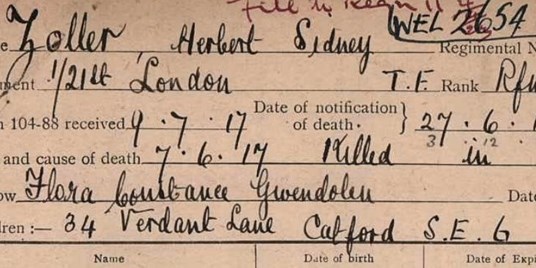 File to Regn
WEL 2654
Zoller, Herbert Sidney Regimental N
ment 1/21st London T.F. Rank Rfn
104-88 received 9.7.17 Date of notification of death. } 27.6.
3 12
and cause of death 7.6.17 Killed in
ow Flora Constance Gwendolen Date
dren :— 34 Verdant Lane Catford S.E. 6
Name Date of birth Date of Expi